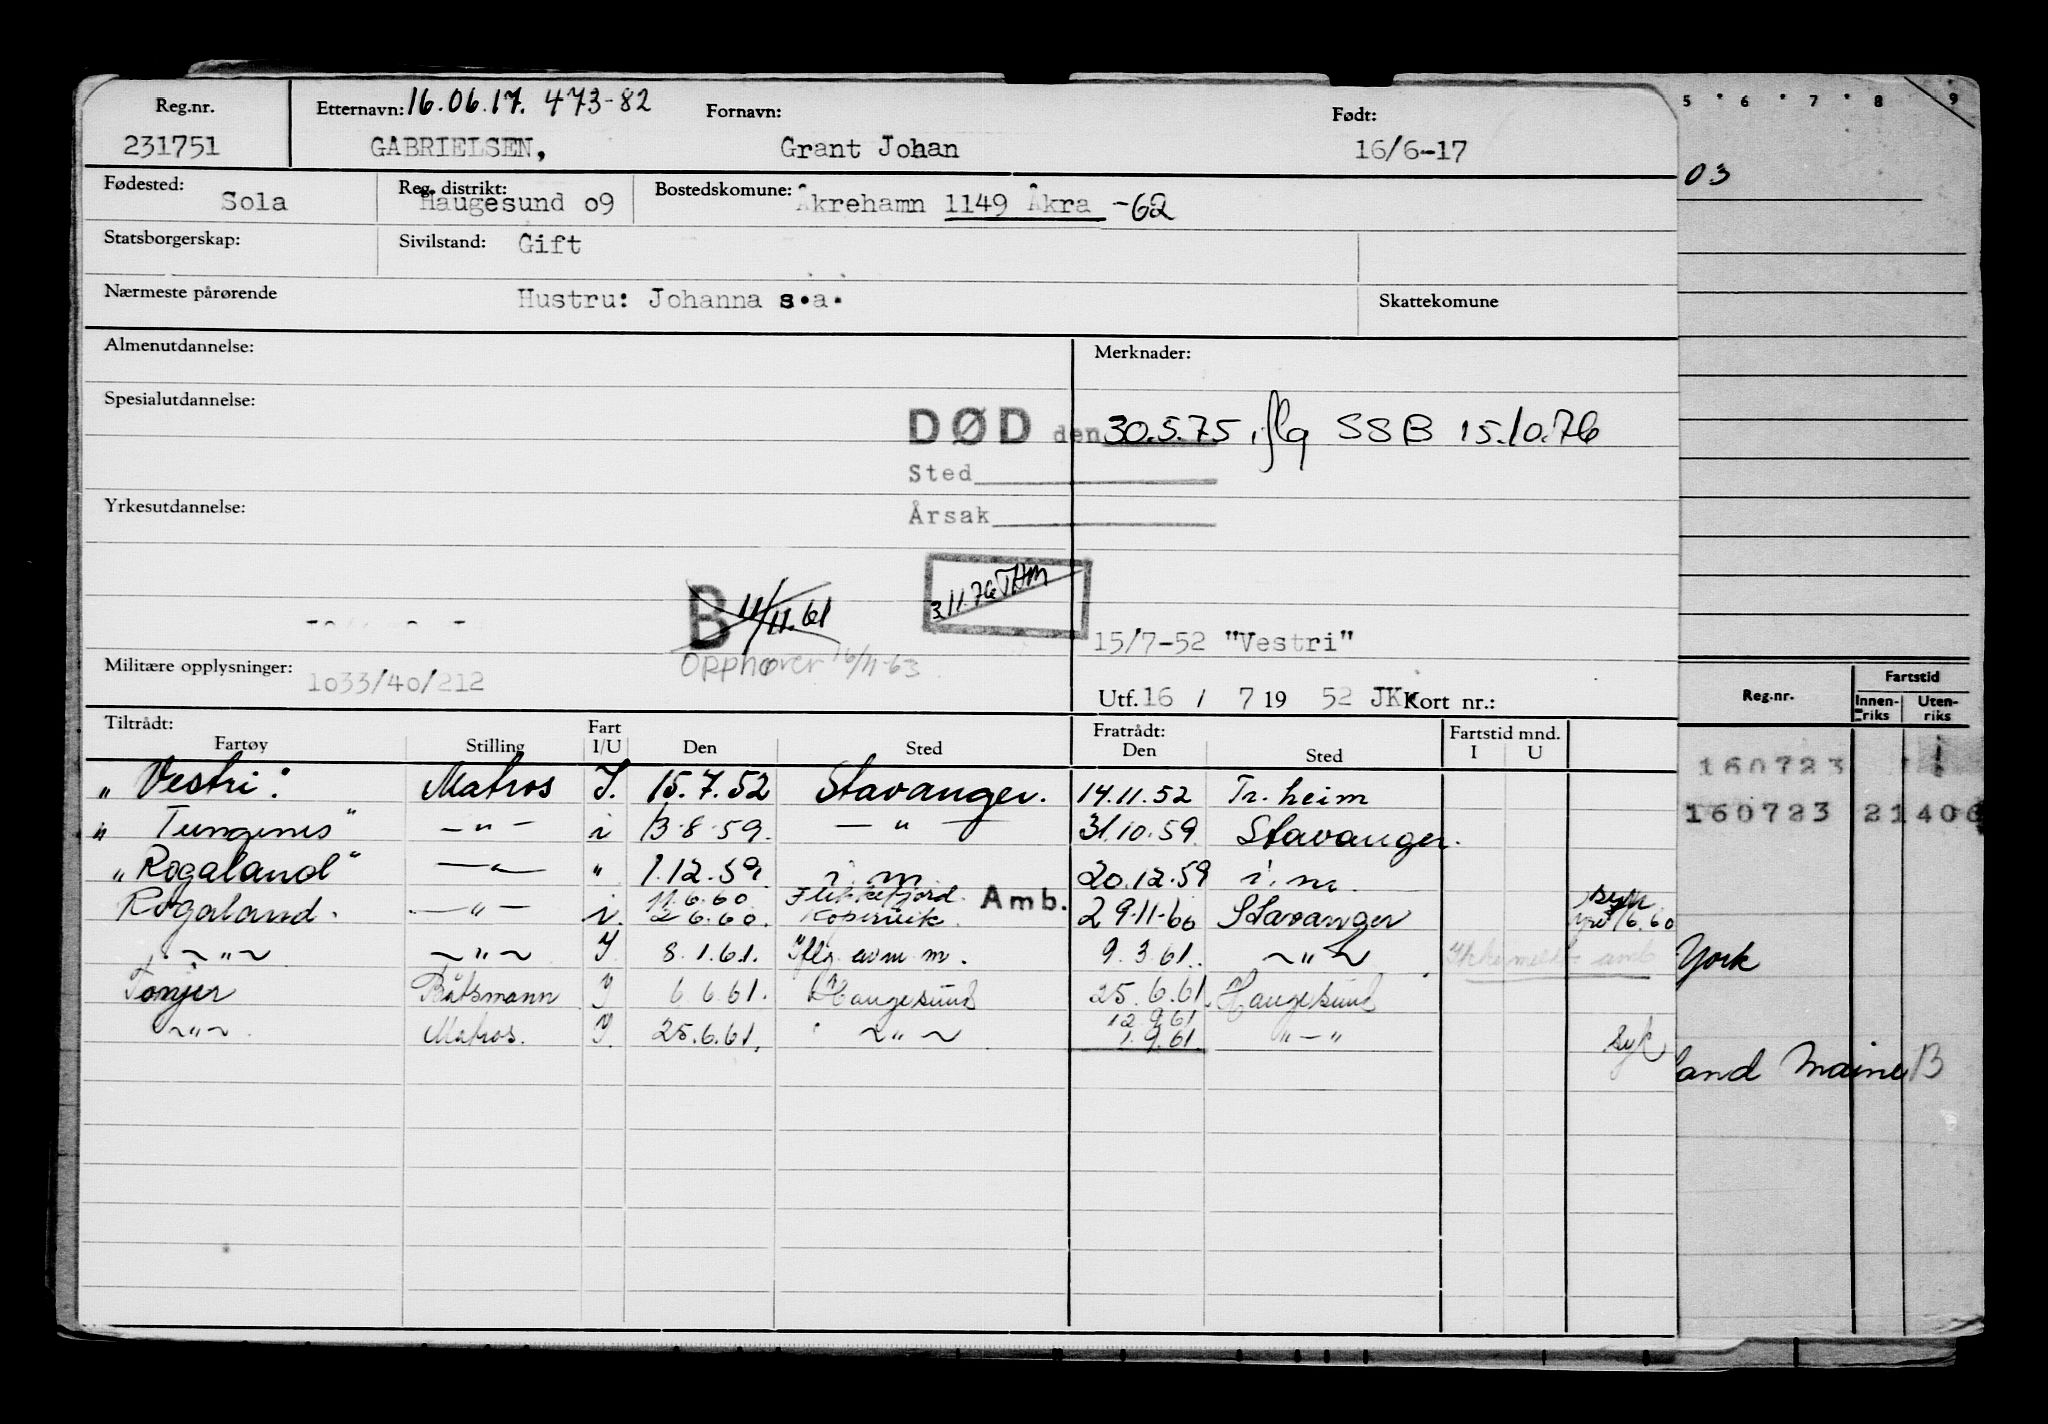 Reg.nr. Etternavn: 16.06.17. 473-82 Fornavn: Født:
231751 GABRIELSEN, Grant Johan 16/6-17
Fødested: Sola Reg. distrikt: Haugesund 09 Bostedskomune: Åkrehamn 1149 Åkra -62
Statsborgerskap: Sivilstand: Gift
Nærmeste pårørende Hustru: Johanna s.a. Skattekomune
Almenutdannelse: Merknader:
Spesialutdannelse:
DØD den 30.5.75 iflg SSB 15.10.76
Sted
Årsak
Yrkesutdannelse:
3.11.76 THM
B 11/11.61
15/7-52 "Vestri"
Opphører 16/11-63
Militære opplysninger: 1033/40/212
Utf. 16 / 7 19 52 JK. Kort nr.:
Tiltrådt: Fratrådt: Fartstid mnd.
Fartøy Stilling Fart I/U Den Sted Den Sted I U
"Vestri". Matros I. 15.7.52 Stavanger. 14.11.52 Tr.heim
"Tungenes" —"— i 13.8.59. —"— 31.10.59 Stavanger.
"Rogaland" —"— " 1.12.59. i.m 20.12.59 i.m.
11.6.60 Flekkefjord. Amb. syk
Rogaland. —"— i. 2 6.60. Kopervik 29-11-60 Stavanger /6.60
~"~ ~"~ I 8.1.61. Iflg. avm. m. 9.3.61. ~"~ Ikke meldt amb
Tonjer Båtsmann I 6.6.61. Haugesund 25.6.61. Haugesund
12.9.61
~"~ Matros. I. 25.6.61. ~"~ 1.9.61. "—" syk
5 6 7 8 9
03
Reg.nr. Fartstid
Innen-riks Uten-riks
160723
160723 21406
York
land Maine B